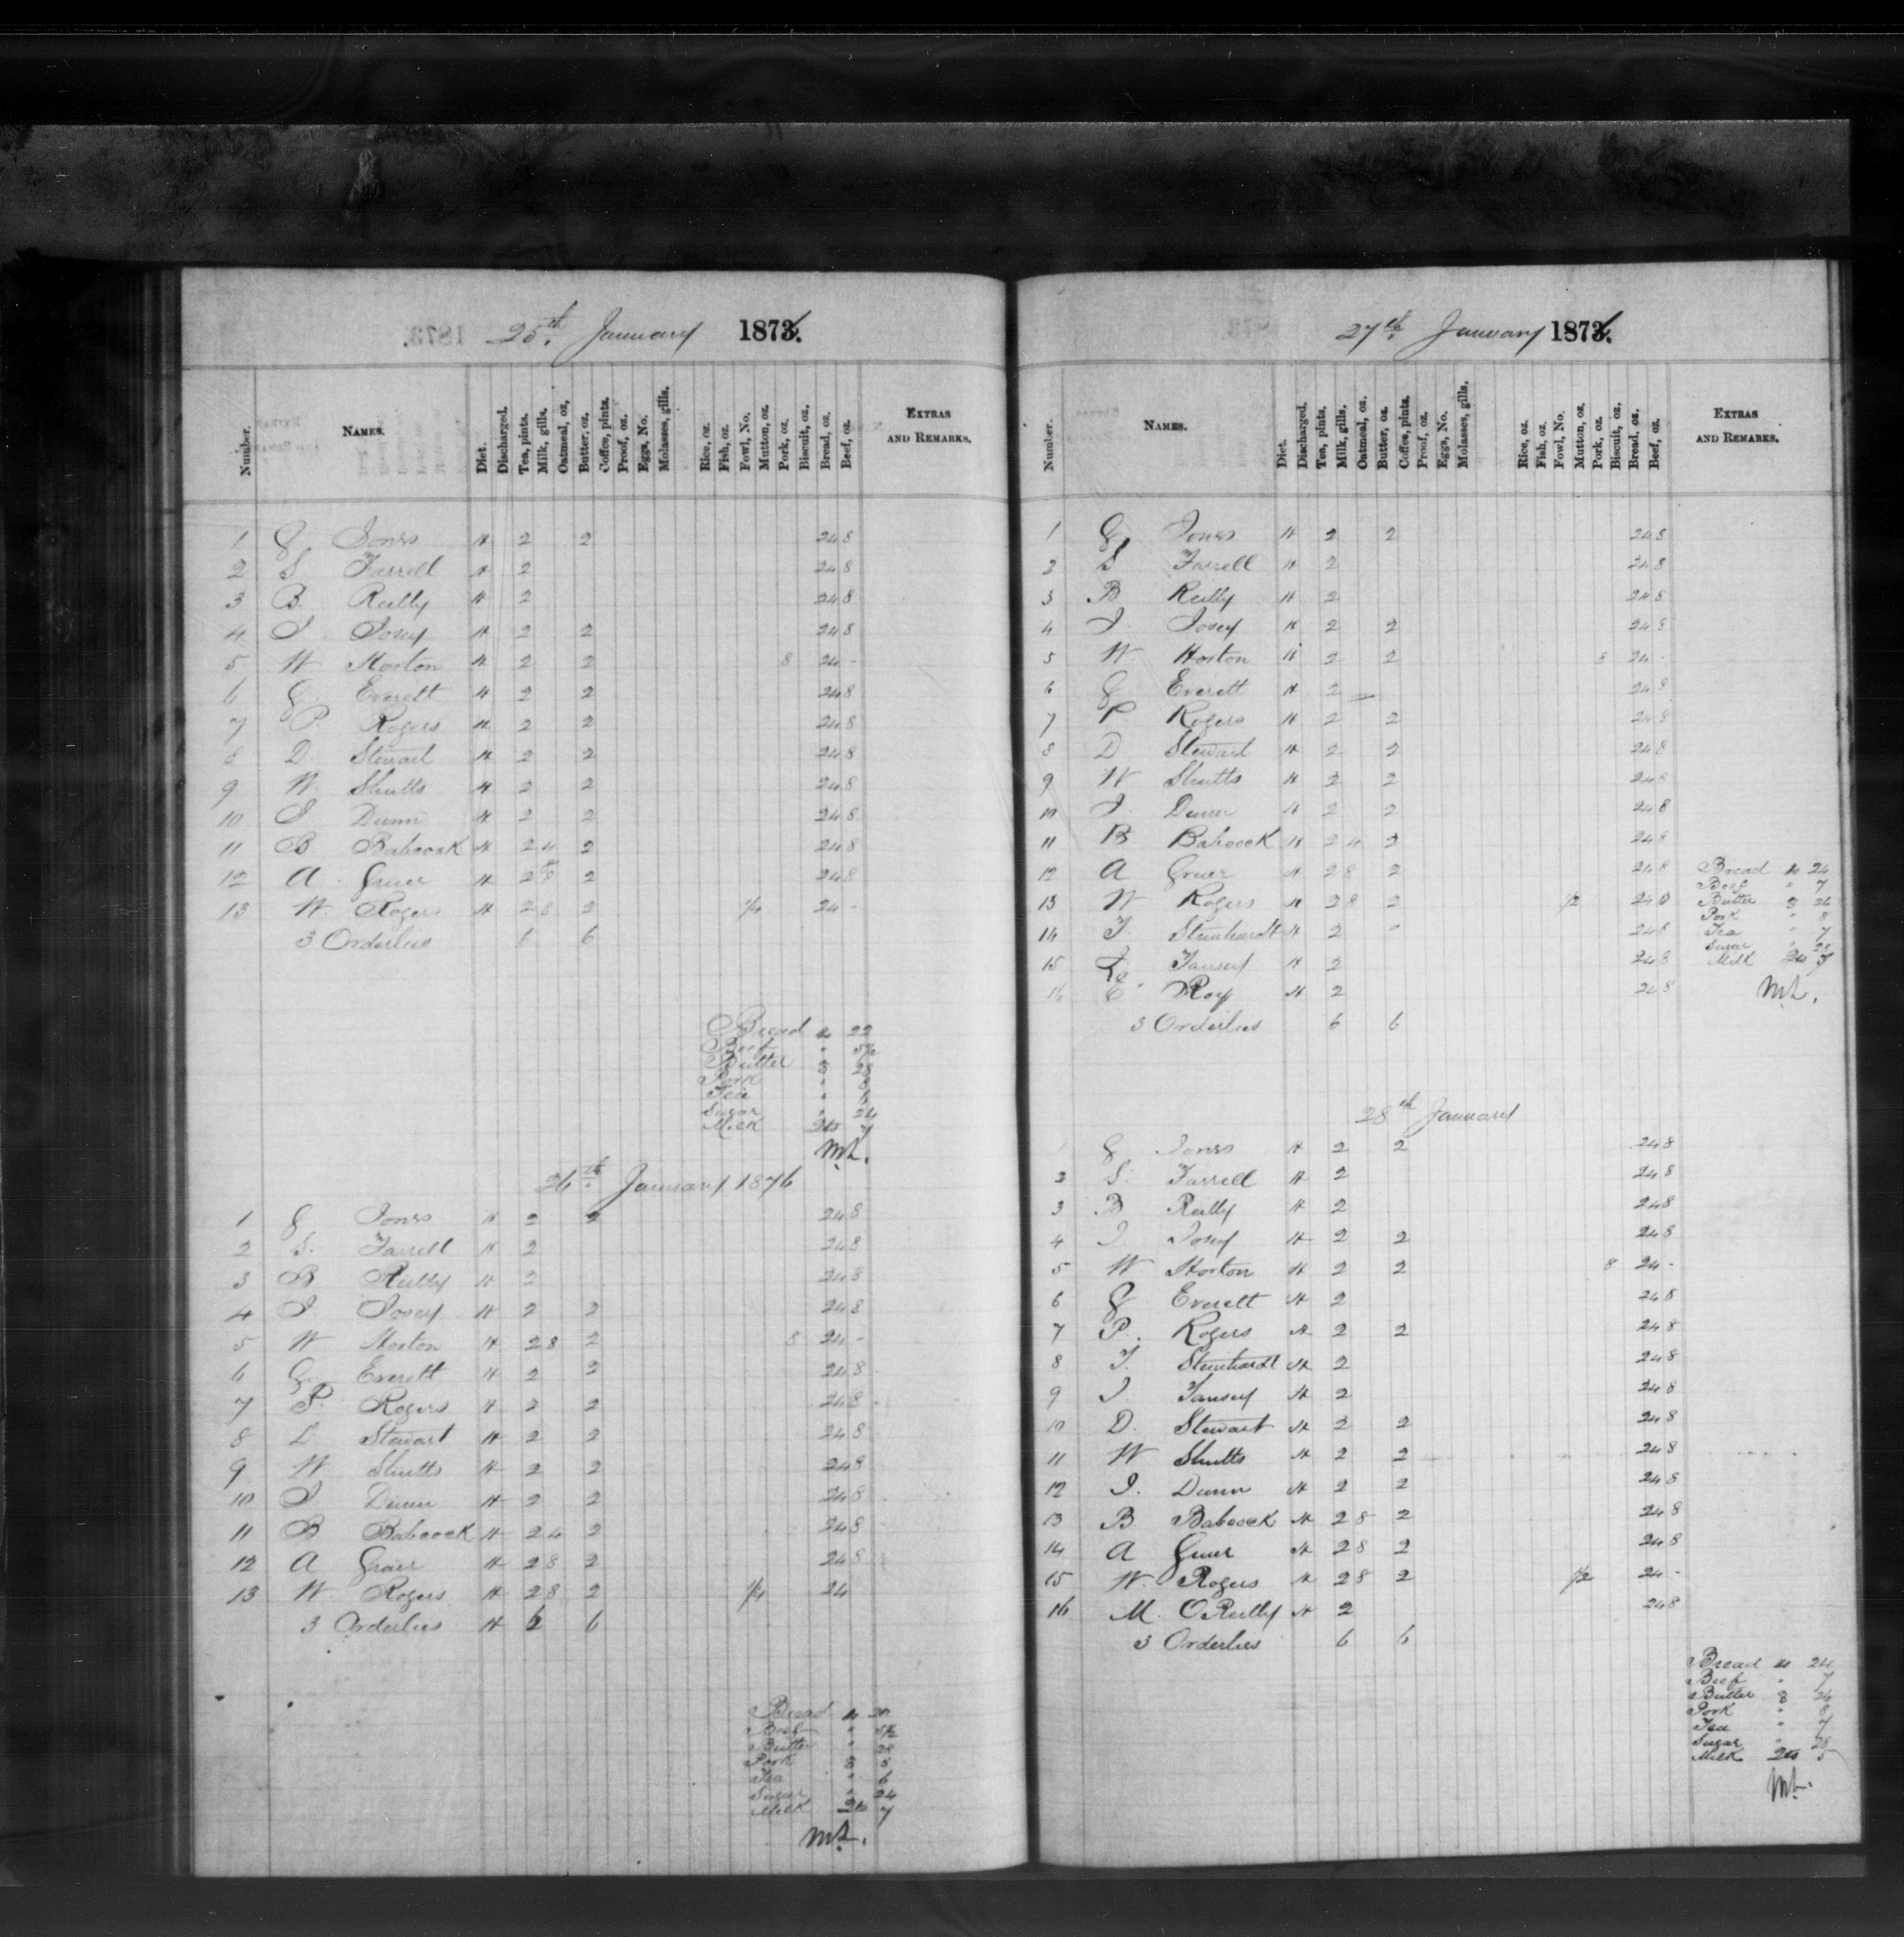 25th. January 1876.
Number. NAMES. Diet. Discharged. Tea, pints. Milk, gills. Oatmeal, oz, Butter, oz. Coffee, pints. Proof, oz. Eggs, No. Molasses, gills. Rice, oz. Fish, oz. Fowl, No. Mutton, oz. Pork, oz. Biscuit, oz. Bread, oz. Beef, oz. EXTRAS AND REMARKS.
1 G Jones H 2 2 24 8
2 S Farrell H 2 24 8
3 B. Reilly H 2 24 8
4 J. Josey H 2 2 24 8
5 W Horton H 2 2 8 24 -
6 G. Everett H 2 2 24 8
7 P Rogers H 2 2 24 8
8 D. Stewart H 2 2 24 8
9 W. Shutts H 2 2 24 8
10 J Dunn H 2 2 24 8
11 B Babcock H 2 4 2 24 8
12 A. Grier H 2 8 2 24 8
13 W Rogers H 2 8 2 1/4 24 -
3 Orderlies 6 6
Bread lb 22
Beef " 5½
Butter 28
Pork " 8
Tea " 6
Sugar " 24
Milk Qts 7
26th January 1876
1 G Jones H 2 2 24 8
2 S. Farrell H 2 24 8
3 B Reilly H 2 24 8
4 J Josey H 2 2 24 8
5 W Horton H 2 8 2 8 24 -
6 G. Everett H 2 2 24 8
7 P. Rogers H 2 2 24 8
8 D Stewart H 2 2 24 8
9 W Shutts H 2 2 24 8
10 J Dunn H 2 2 24 8
11 B Babcock H 2 4 2 24 8
12 A Grier H 2 8 2 24 8
13 W Rogers H 2 8 2 1/4 24
3 Orderlies H 6 6
Bread lb
Beef " 5½
Butter " 28
Pork 8
Tea " 6
Sugar " 24
Milk Qts 7
27th January 1876.
Number. NAMES. Diet. Discharged. Tea, pints. Milk, gills. Oatmeal, oz. Butter, oz. Coffee, pints. Proof, oz. Eggs, No. Molasses, gills. Rice, oz. Fish, oz. Fowl, No. Mutton, oz. Pork, oz. Biscuit, oz. Bread, oz. Beef, oz. EXTRAS AND REMARKS.
1 G Jones H 2 2 24 8
2 S Farrell H 2 24 8
3 B Reilly H 2 24 8
4 J. Josey H 2 2 24 8
5 W Horton H 2 2 8 24 -
6 G Everett H 2 - 24 8
7 P Rogers H 2 2 24 8
8 D Stewart H 2 2 24 8
9 W Shutts H 2 2 24 8
10 J. Dunn H 2 2 24 8
11 B Babcock H 2 4 2 24 8
12 A Grier H 2 8 2 24 8
13 W Rogers H 2 8 2 1/2 24 0
14 F. Steinhardt H 2 24 8
15 J. Tansey H 2 24 8
16 C Roy H 2 24 8
3 Orderlies 6 6
Bread lb 24
Beef " 7
Butter 26
Pork " 8
Tea " 7
Sugar " 28
Milk Qts 7
28th January
G Jones H 2 2 24 8
2 S. Farrell H 2 24 8
3 B Reilly H 2 24 8
4 J. Josey H 2 2 24 8
5 W Horton H 2 2 8 24 -
6 G Everett H 2 24 8
7 P. Rogers H 2 2 24 8
8 F. Steinhardt H 2 24 8
9 J Tansey H 2 24 8
10 D. Stewart H 2 2 24 8
11 W Shutts H 2 2 24 8
12 J. Dunn H 2 2 24 8
13 B Babcock H 2 8 2 24 8
14 A Grier H 2 8 2 24 8
15 W. Rogers H 2 8 2 1/2 24 -
16 M. O Reilly H 2 24 8
3 Orderlies 6 6
Bread lb 24
Beef " 7
Butter 26
Pork " 8
Tea " 7
Sugar " 28
Milk Qts 5